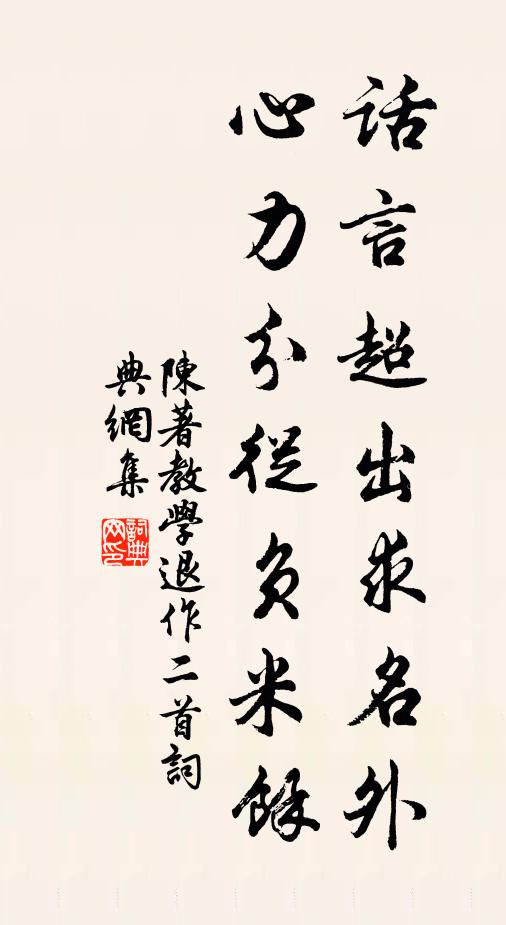 話言超出求名外
心力分從負米餘
陳著教學退作二首詞
典網集
詞典网印